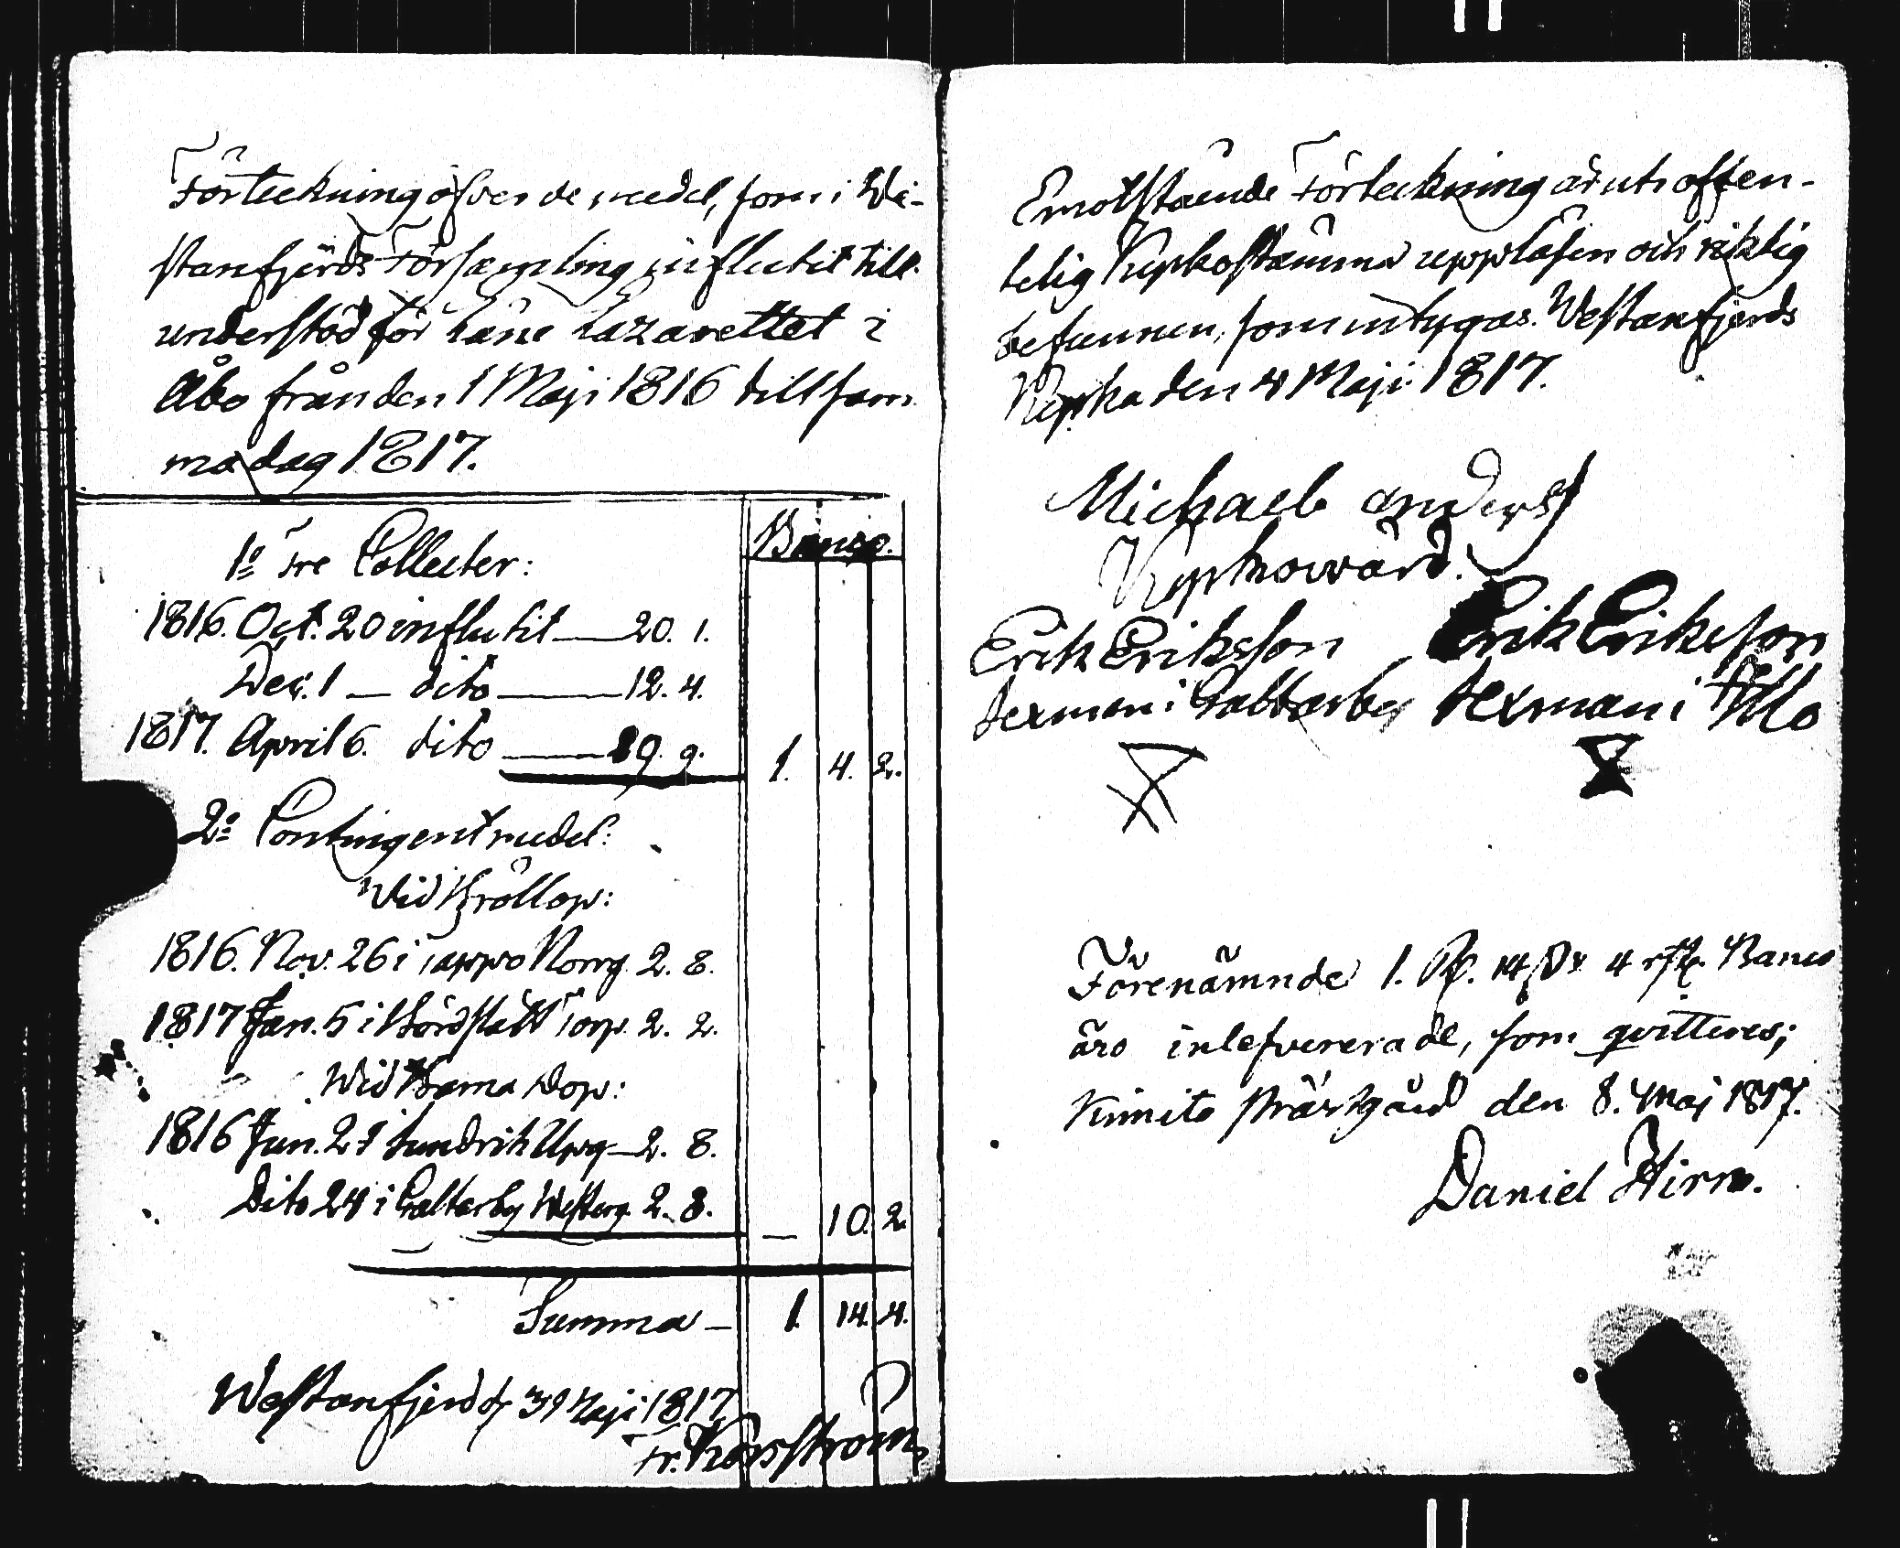 Förteckning öfver de medel, som i We-
stanfjerds Församling influtit till
understöd för Läne Lazarettet i
Åbo från den 1 Maji 1816 till sam-
ma dag 1817.
Banco.
1:o Tre Collecter:
1816. Oct. 20 influtit — 20. 1.
Dec. 1 — dito — 12. 4.
1817. April 6. dito — 19. 9. 1. 4. 2.
2:o Contingent medel:
Wid Bröllop:
1816. Nov. 26 i Norrg. 2. 8.
1817 Jan. 5 i Torp. 2. 2.
Wid Barna Dop:
1816 Jun. 21 2. 8.
Dito 24 i Galtarby Westerg. 2. 8. — 10. 2.
Summa — 1. 14. 4.
Westanfjerd d. 3 Maji 1817
Fr. Korsström
Emotstående Förteckning är uti offen-
telig Kyrkostämma uppläsen och riktig
befunnen, som intygas. Westanfjerds
Kyrka den 4 Maji 1817.
Michael anders
Kyrkowärd.
Erik Eriksson Erik Eriksson
Sexman i Galtarby Sexman i
Förenämnde 1. R. 14 s. 4 rst. Banco
äro inlefvererade, som qvitteras;
Kimito Prästgård den 8. Maj 1817.
Daniel Hirn.